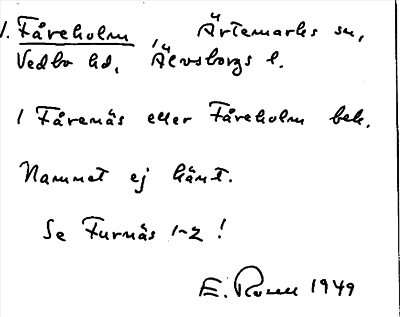 1. Fåreholm, Ärtemarks sn,
Vedbo hd, Älvsborgs l.
1 Fårenäs eller Fåreholm bek.
Namnet ej känt.
Se Furnäs 1-2!
E. 1949